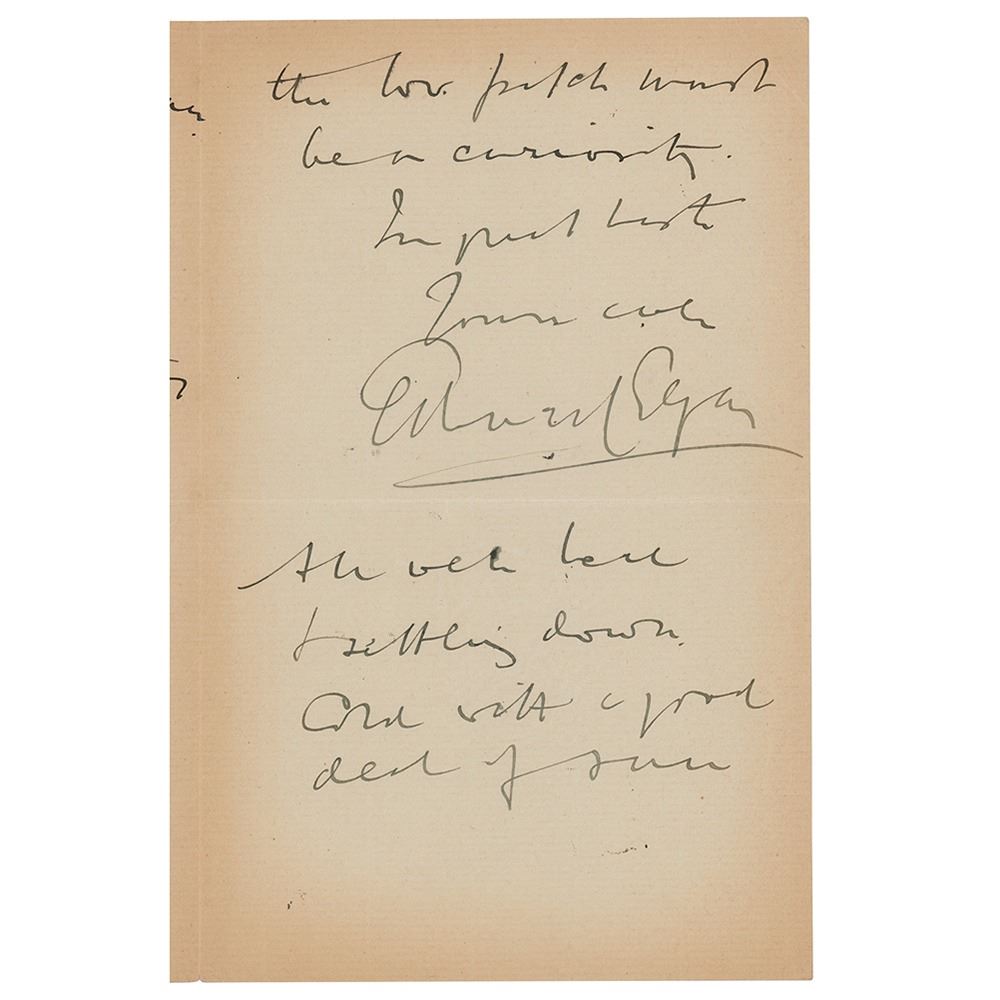 the low pitch must
be a curiosity.
In great haste
Yours
Edward Elgar
All well here
& settling down.
Cold with a good
deal of sun